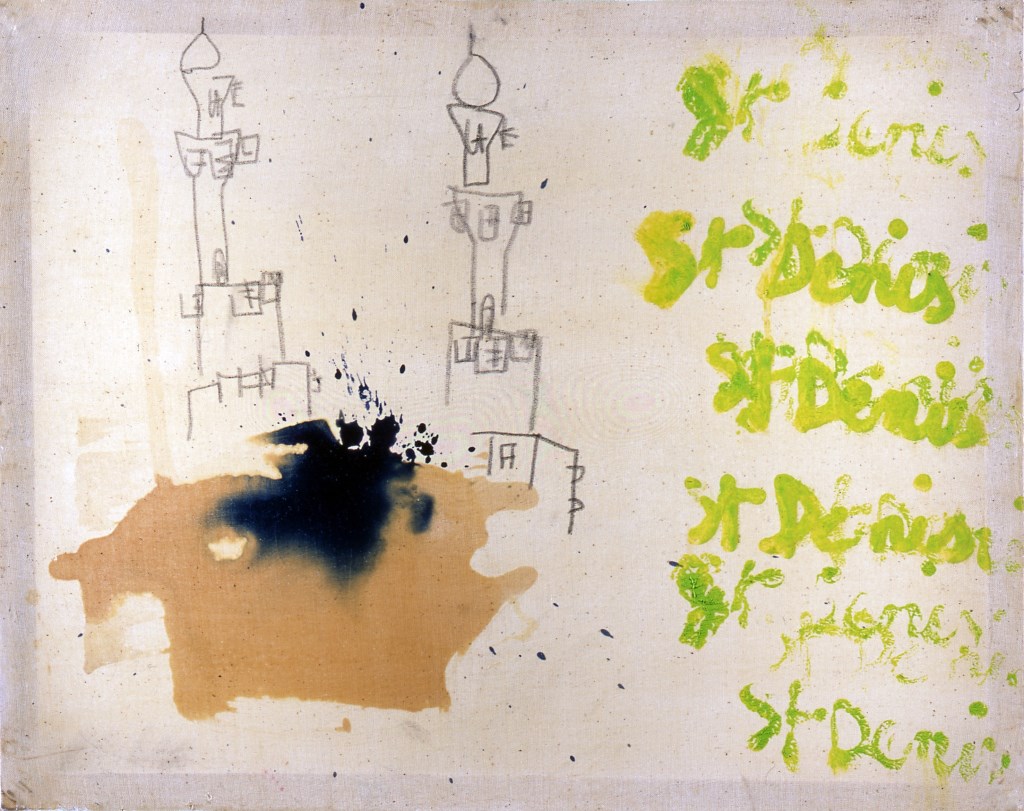 St Denis
St Denis
St Denis
St Denis
St Denis
St Denis